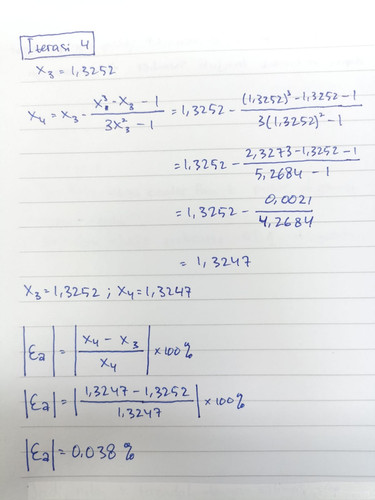 Iterasi 4
x₃ = 1,3252
x₄ = x₃ - (x₃³ - x₃ - 1)/(3x₃² - 1) = 1,3252 - ((1,3252)³ - 1,3252 - 1)/(3(1,3252)² - 1)
= 1,3252 - (2,3273 - 1,3252 - 1)/(5,2684 - 1)
= 1,3252 - 0,0021/4,2684
= 1,3247
x₃ = 1,3252 ; x₄ = 1,3247
|εa| = |(x₄ - x₃)/x₄| × 100%
|εa| = |(1,3247 - 1,3252)/1,3247| × 100%
|εa| = 0,038 %